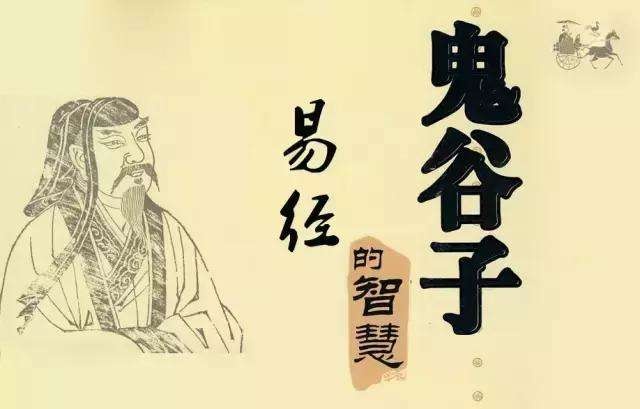 鬼谷子
易经
的智慧